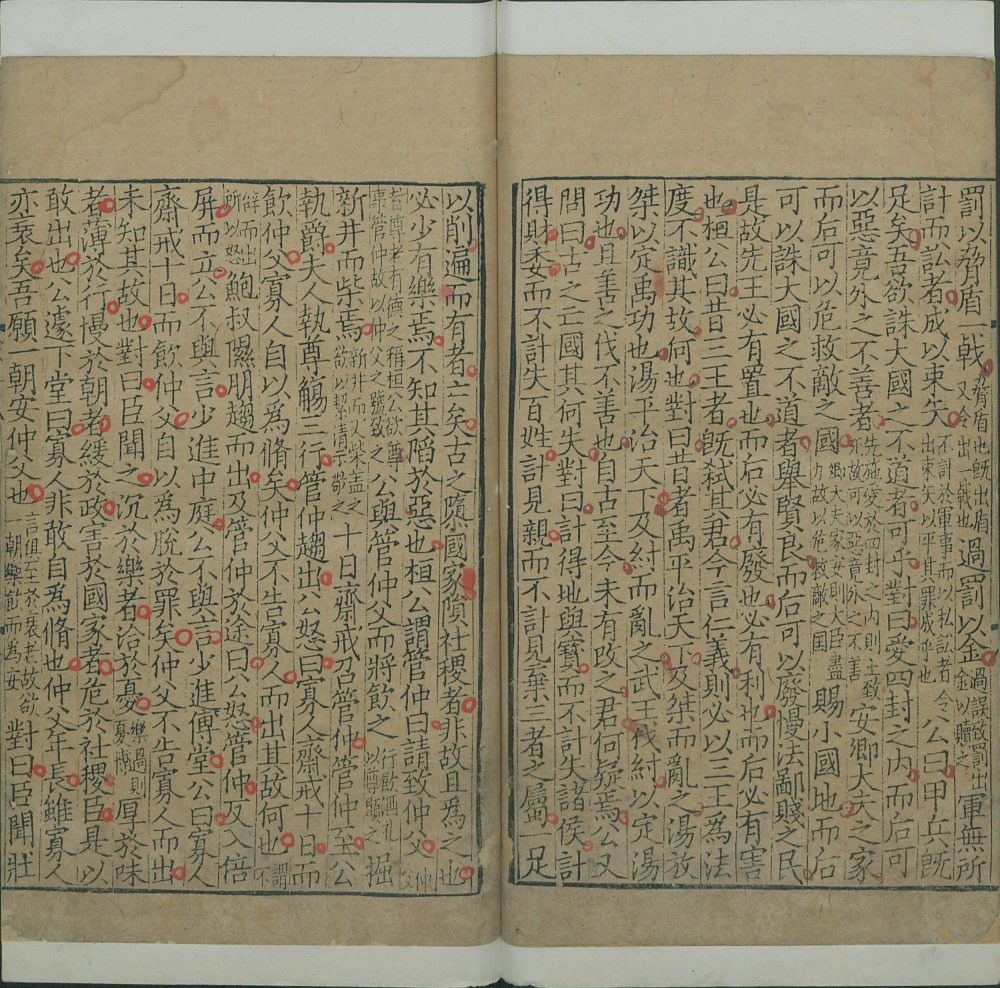 罰以脅盾一戟脅盾也既出盾又令出一戟也過罰以金過誤致罰出金以贖之軍無所
計而訟者成以束矢不計於軍事而以私訟者令出束矢以平其罪成平也公曰甲兵既
足矣吾欲誅大國之不道者可乎對曰愛四封之内而后可
以惡竟外之不善者先施愛於四封之内則士致死故可以惡意外之不善安卿大夫之家
而后可以危救敵之國卿大夫家安則大臣盡力故以危救敵之国賜小國地而后
可以誅大國之不道者舉賢良而后可以廢慢法鄙賤之民
是故先王必有置也而后必有廢也必有利也而后必有害
也桓公曰昔三王者既弑其君今言仁義則必以三王為法
度不識其故何也對曰昔者禹平治天下及桀而亂之湯放
桀以定禹功也湯平治天下及紂而亂之武王伐紂以定湯
功也且善之伐不善也自古至今未有改之君何疑焉公又
問曰古之亡國其何失對曰計得地與寶而不計失諸侯計
得財委而不計失百姓計見親而不計見棄三者之屬一足
以削遍而有者亡矣古之隳國家隕社稷者非故且為之也
必少有樂焉不知其陷於惡也桓公謂管仲曰請致仲父仲父
者尊老有德之稱桓公欲尊事管仲故以仲父之號致之公與管仲父而將飲之行飲酒礼以尊顯之掘
新井而柴焉新井而又柴盖之欲以絜清示敬之十日齋戒召管仲管仲至公
執爵夫人執尊觴三行管仲趨出公怒曰寡人齋戒十日而
飲仲父寡人自以為脩矣仲父不告寡人而出其故何也謂不
辭而出所以怒鮑叔隰朋趨而出及管仲於途曰公怒管仲反入倍
屏而立公不與言少進中庭公不與言少進傅堂公曰寡人
齋戒十日而飲仲父自以為脫於罪矣仲父不告寡人而出
未知其故也對曰臣聞之沉於樂者洽於憂樂過則憂博厚於味
者薄於行慢於朝者緩於政害於國家者危於社稷臣是以
敢出也公遽下堂曰寡人非敢自為脩也仲父年長雖寡人
亦衰矣吾願一朝安仲父也言俱至於衰老故欲一朝樂飲而為安對曰臣聞壯